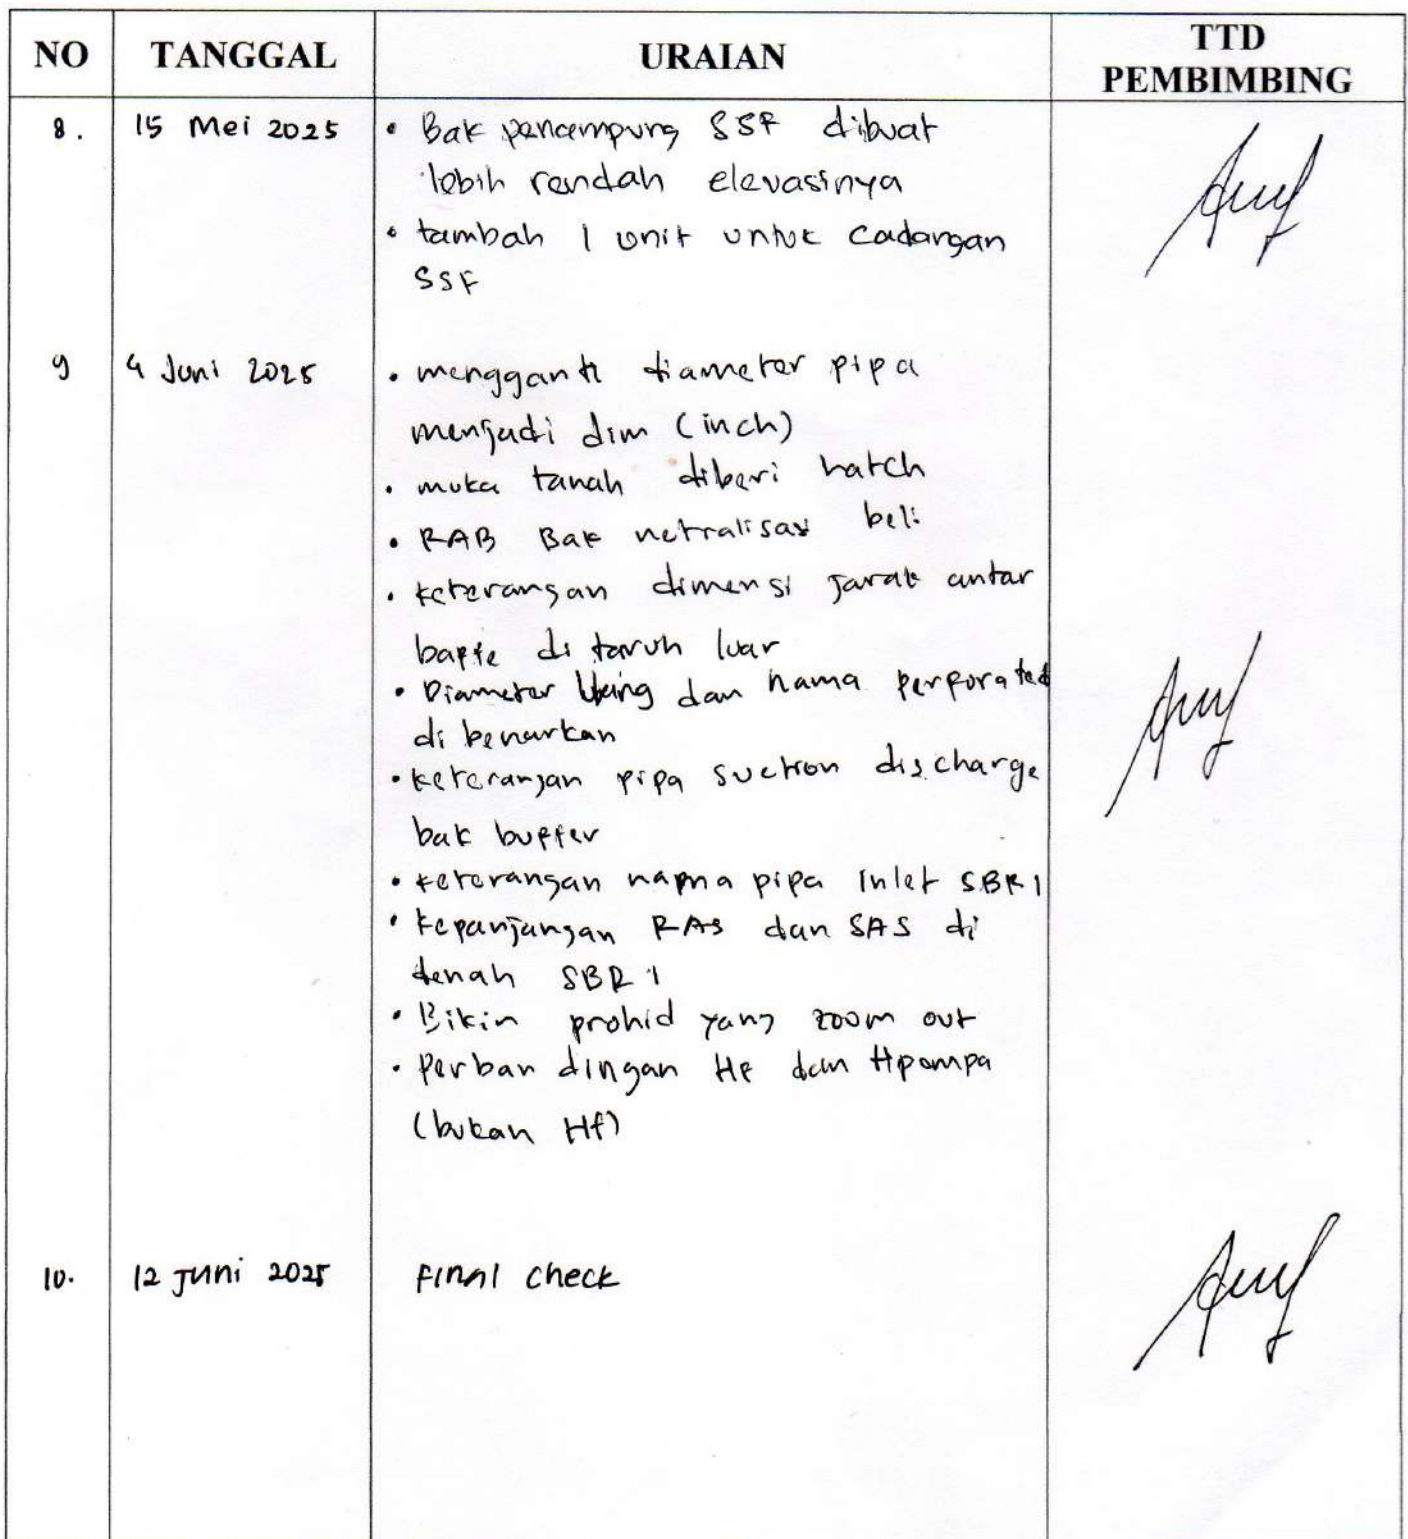 NO TANGGAL URAIAN TTD PEMBIMBING
8. 15 Mei 2025 • Bak penampung SSF dibuat
lebih rendah elevasinya
• tambah 1 unit untuk cadangan
SSF
9 4 Juni 2025 • mengganti diameter pipa
menjadi dim (inch)
• muka tanah diberi hatch
• RAB Bak netralisasi beli
• keterangan dimensi jarak antar
baffle di taruh luar
• Diameter lubang dan nama perforated
di benarkan
• keterangan pipa suction discharge
bak buffer
• keterangan nama pipa inlet SBR 1
• kepanjangan RAS dan SAS di
denah SBR 1
• Bikin prohid yang zoom out
• Perban dingan HF dan Hpompa
(bukan Hf)
10. 12 Juni 2025 Final check